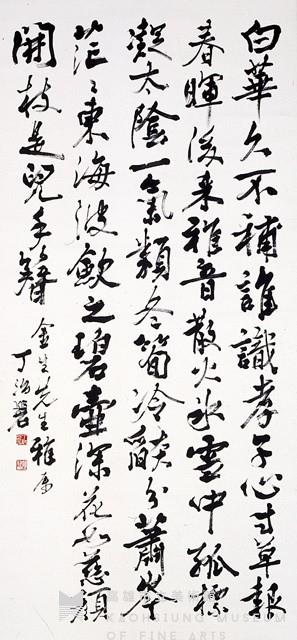 白華久不補誰識孝子心寸草報
春暉後来雅音散火冰雪中孤標
太陰一氣類冬筍冷豔分蕭岑
茫々東海波飲之碧壺深花如慈顏
開枝是兒手簪
金生先生雅屬
丁治磐
高雄市立美術館
KAOHSIUNG MUSEUM
OF FINE ARTS